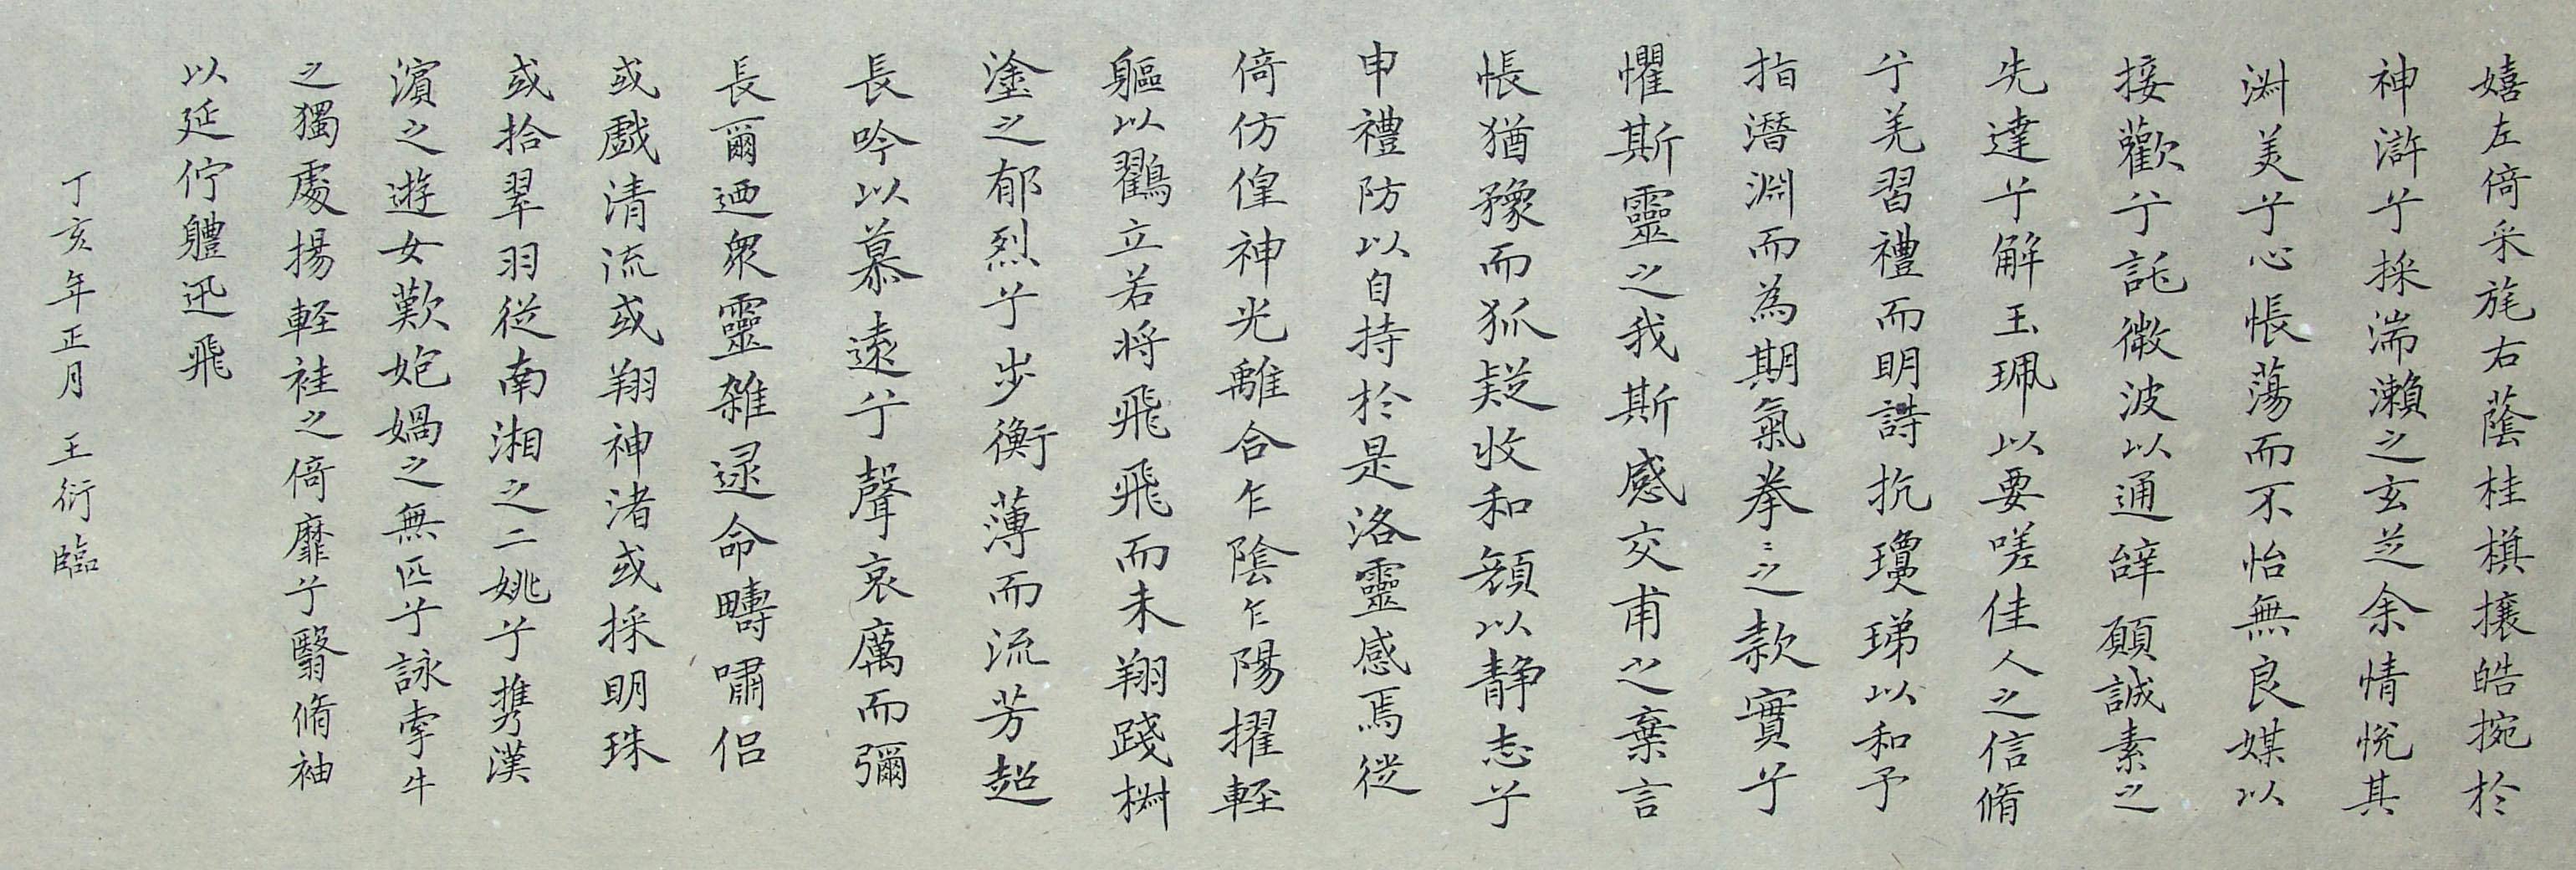 嬉左倚采旄右蔭桂棋攘皓捥於
神滸兮採湍瀨之玄芝余情悅其
淋美兮心悵蕩而不怡無良媒以
接歡兮託微波以通辝願誠素之
先達兮解玉珮以要嗟佳人之信脩
兮羌習禮而明詩抗瓊珶以和予
指潛淵而為期氣拳〻之款實兮
懼斯靈之我斯感交甫之棄言
悵猶豫而狐疑收和顏以静志兮
申禮防以自持於是洛靈感焉從
倚仿偟神光離合乍陰乍陽擢輕
軀以鸖立若将飛飛而未翔踐椒
塗之郁烈兮步衡薄而流芳超
長吟以慕遠兮聲哀厲而彌
長爾迺衆靈雜逯命疇嘯侶
或戲清流或翔神渚或採明珠
或拾翠羽從南湘之二姚兮攜漢
濱之遊女歎㚿媧之無匹兮詠牽牛
之獨處揚輕袿之倚靡兮翳脩袖
以延佇軆迅飛
丁亥年正月 王衍臨